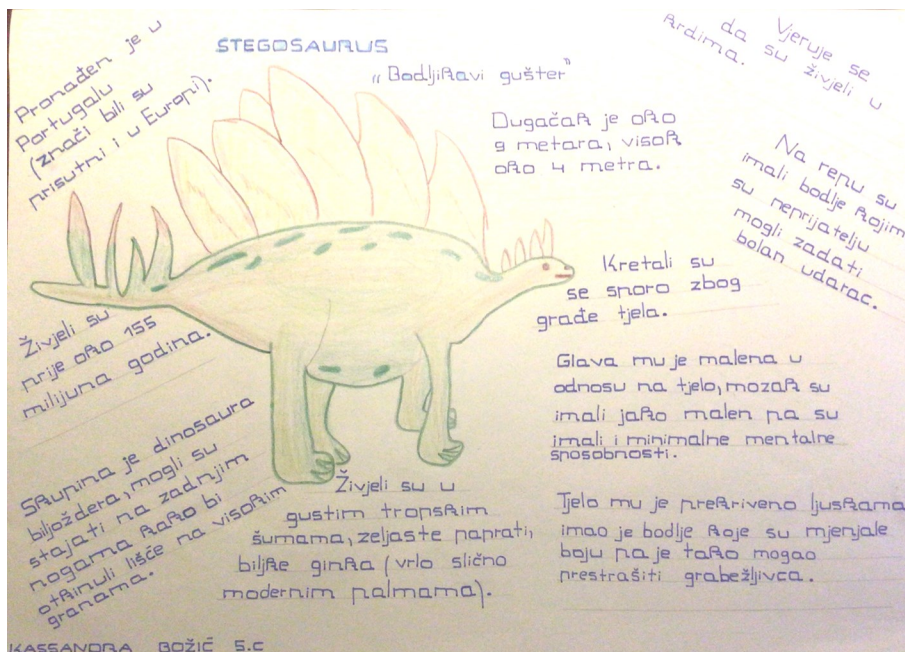 STEGOSAURUS
„Bodljikavi gušter"
Pronađen je u
Portugalu
(znači bili su
prisutni i u Europi).
Vjeruje se
da su živjeli u
krdima.
Dugačak je oko
9 metara, visok
oko 4 metra.
Na repu su
imali bodlje kojim
su neprijatelju
mogli zadati
bolan udarac.
Kretali su
se sporo zbog
građe tjela.
Živjeli su
prije oko 155
milijuna godina.
Glava mu je malena u
odnosu na tjelo, mozak su
imali jako malen pa su
imali i minimalne mentalne
sposobnosti.
Skupina je dinosaura
biljoždera, mogli su
stajati na zadnjim
nogama kako bi
otkinuli lišće na visokim
granama.
Živjeli su u
gustim tropskim
šumama, zeljaste paprati,
biljke ginka (vrlo slično
modernim palmama).
Tjelo mu je prekriveno ljuskama
imao je bodlje koje su mjenjale
boju pa je tako mogao
prestrašiti grabežljivca.
KASSANDRA BOŽIĆ 5.c